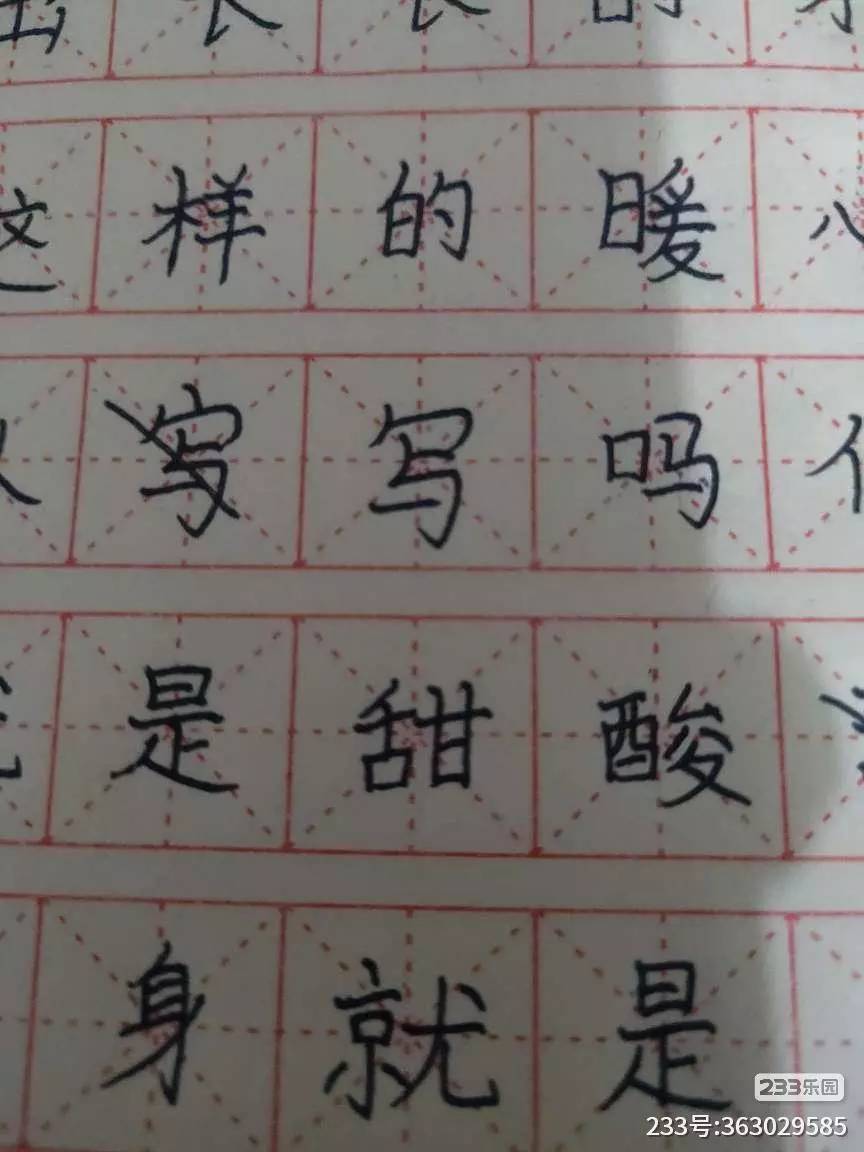 的
这样的暖心
写写吗
是甜酸
身就是
233乐园
233号:363029585